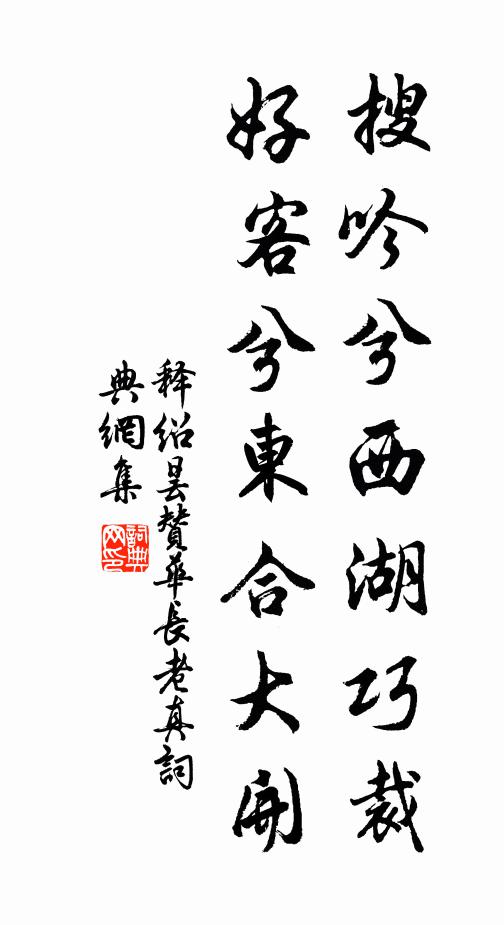 搜吟兮西湖巧裁
好客兮東合大開
释绍昙賛華長老真詞
典網集
詞典网印